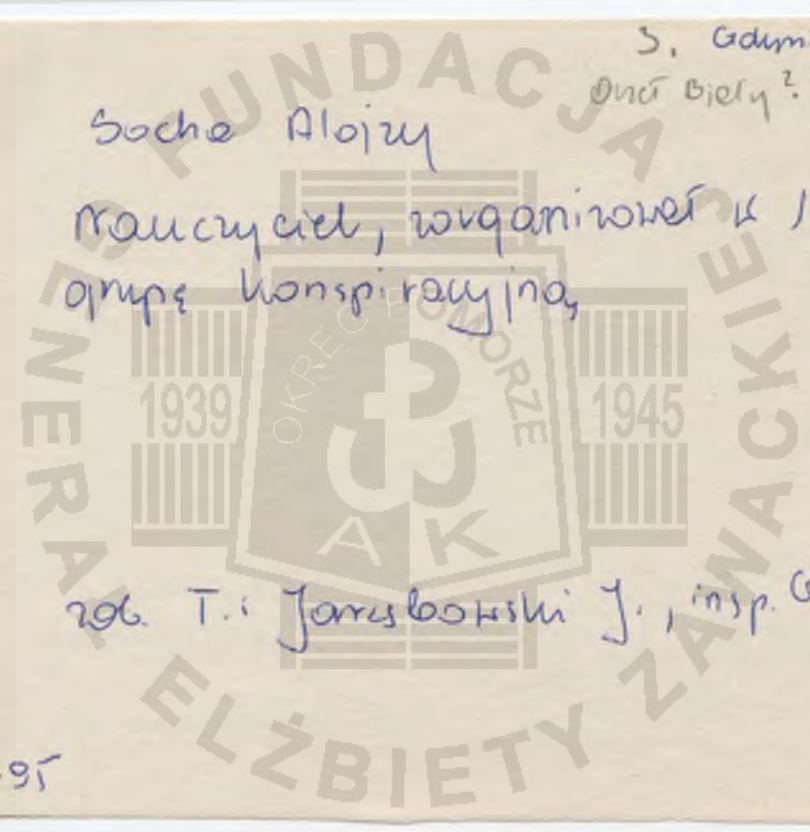 S. Gdyn
Orzeł Biały?
Socha Alojzy
Nauczyciel, zorganizował w
grupę konspiracyjną
zob. T.: Jarzębowski J., insp. G
95
FUNDACJA
GENERAŁ ELŻBIETY ZAWACKIEJ
OKRĘG POMORZE
1939
1945
AK